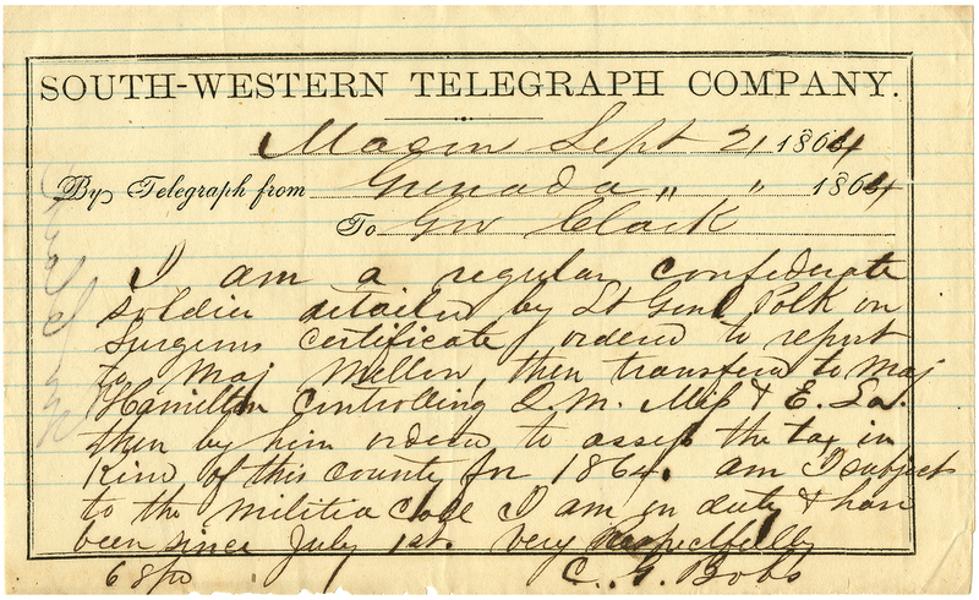 SOUTH-WESTERN TELEGRAPH COMPANY.
Macon Sept 21 1864
By Telegraph from Grenada " " 1864
To Gov Clark
I am a regular confederate
soldier detailed by Lt Genl Polk on
Surgeons certificate, ordered to report
to Maj Mellon, then transferd to Maj
Hamilton Controlling Q.M. Miss & E. La.
then by him ordered to assess the tax in
Kind of this county for 1864. am I subject
to the militia call I am on duty & have
been since July 1st. Very respectfully
68pd C. G. Bobo